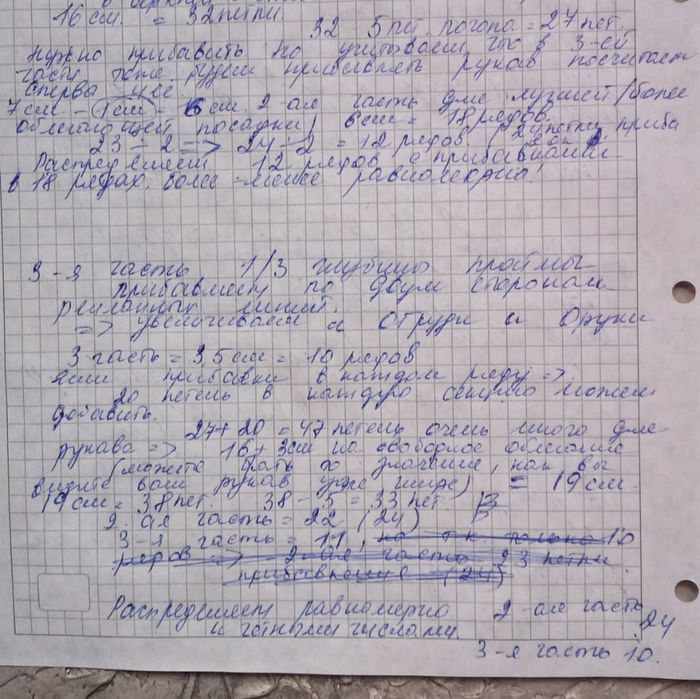 16 см. = 32 петли.
32 5 пет. = 27 пет.
нужно прибавить Но учитываем, что в 3-ей
части тоже будем прибавлять рукав посчитаем
сперва
7 см - 1 см = 6 см 2-ая часть для лучшей / более
облегающей посадки / 6 см = 18 рядов.
23 ÷ 2 => 24 ÷ 2 = 12 рядов
Распределяем 12 рядов с прибавками
в 18 рядах. более-менее равномерно!
3-я часть 1/3 глубины проймы
прибавляем по двум сторонам
регланных линий.
=> увеличиваем и Огруди и Оруки
3 часть = 3,5 см = 10 рядов
если прибавки в каждом ряду =>
20 петель в каждую секцию можем
добавить.
27 + 20 = 47 петель очень много для
рукава => 16 + 3 см на свободное облегание
(можете брать то значение, как вы
видите ваш рукав уже, шире) = 19 см.
19 см = 38 пет. 38 - 5 = 33 пет.
2-ая часть = 22 (24)
3-я часть = 11, но т.к только 10
рядов => 2-ая часть 23 петли.
прибавление (24)
Распределяем равномерно 2-ая часть
и чётными числами. 24
3-я часть 10.